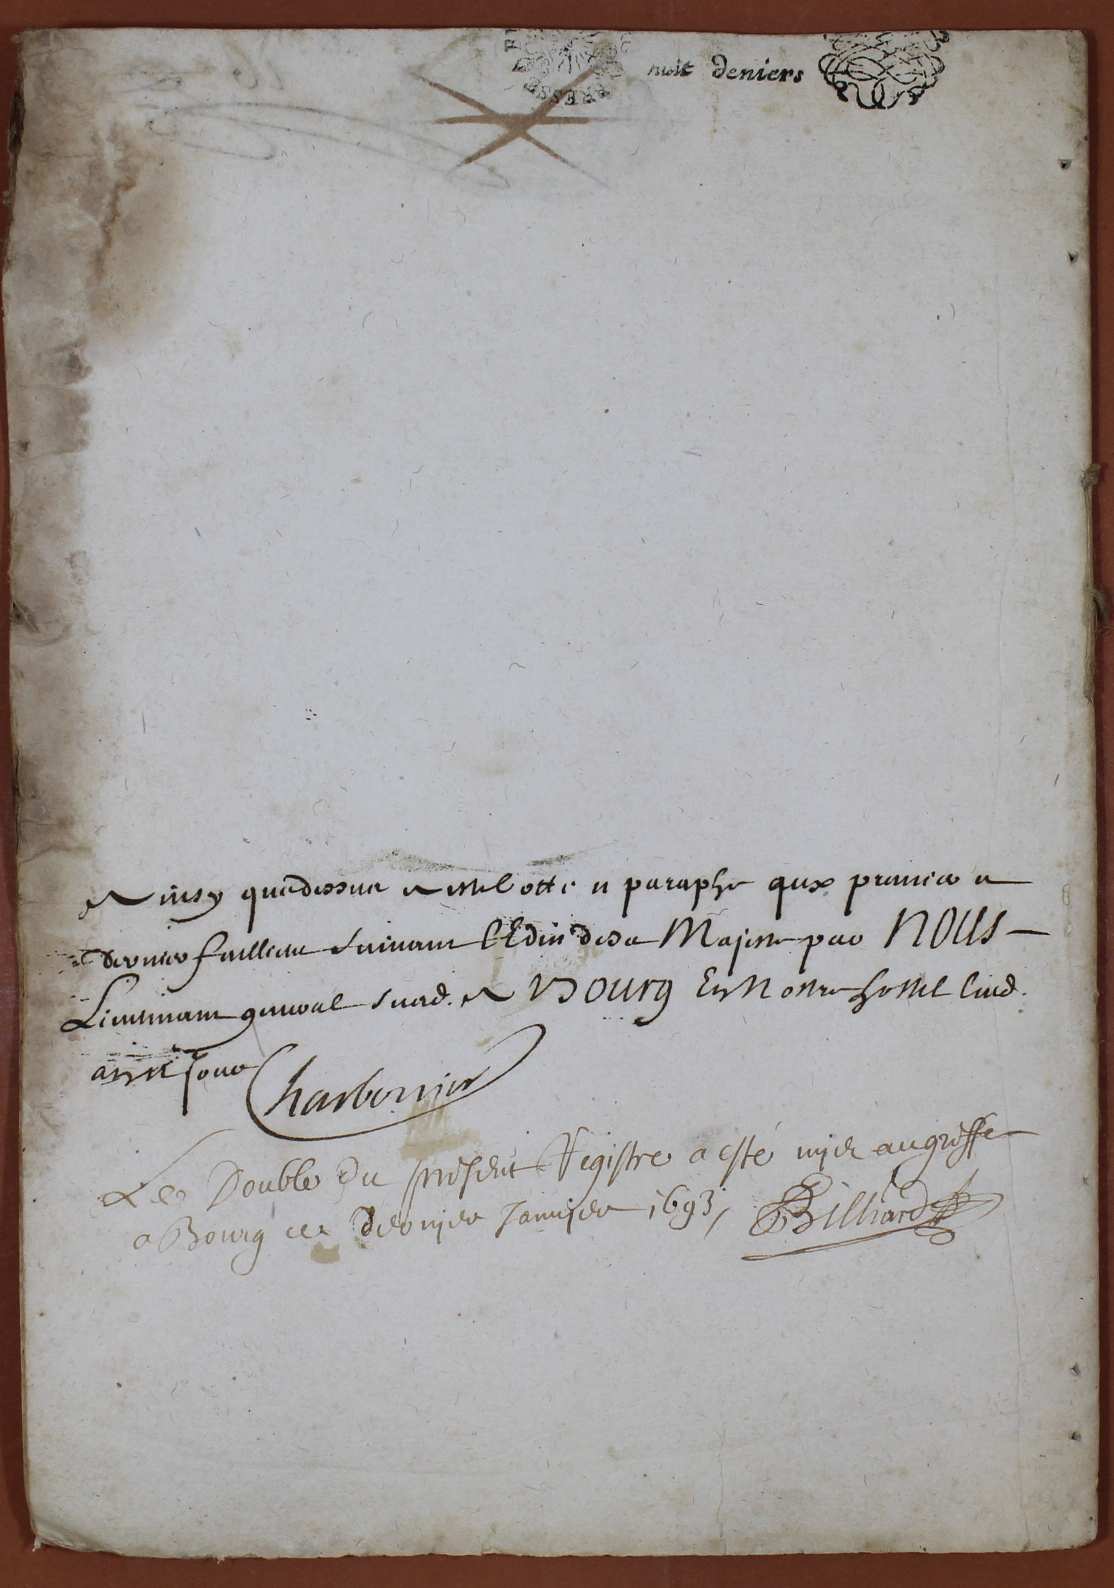 huit deniers
BRESSE
Ainsy que dessus a esté cotté et paraphé aux premier et
dernier feuillets suivant l'Edit de sa Majesté par NOUS
Lieutenant general susd. A Bourg En Nostre hostel lesd.
an et jour Charbonnier
Le Double Du present Registre a esté mis au greffe
a Bourg ce dernier Janvier 1693, Billiard